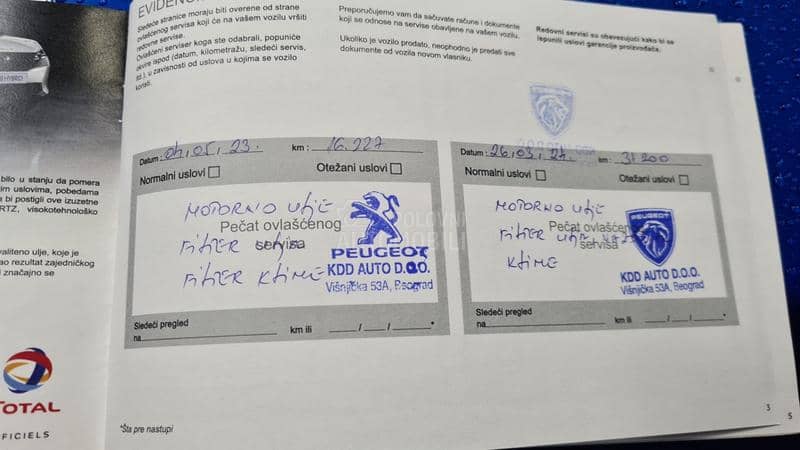 EVIDEN
Sledeće stranice moraju biti overene od strane
ovlašćenog servisa koji će na vašem vozilu vršiti
redovne servise.
Ovlašćeni serviser koga ste odabrali, popuniće
okvire ispod (datum, kilometražu, sledeći servis,
itd.), u zavisnosti od uslova u kojima se vozilo
koristi.
Preporučujemo vam da sačuvate račune i dokumente
koji se odnose na servise obavljene na vašem vozilu.
Ukoliko je vozilo prodato, neophodno je predati sve
dokumente od vozila novom vlasniku.
Redovni servisi su obavezujući kako bi se
ispunili uslovi garancije proizvođača.
HYBRID
bilo u stanju da pomera
im uslovima, pobedama
a bi postigli ove izuzetne
RTZ, visokotehnološko
valiteno ulje, koje je
ao rezultat zajedničkog
i značajno se
TOTAL
FFICIELS
Datum: 04.05.23. km: 16.227
Normalni uslovi Otežani uslovi
MOTORNO ULJE
Pečat ovlašćenog
servisa
FILTER ulja
FILTER KLIME
PEUGEOT
KDD AUTO D.O.O.
Višnjička 53A, Beograd
Sledeći pregled
na km ili / / *
Datum: 26.03.24. km: 31200
Normalni uslovi Otežani uslovi
MOTORNO ULJE
Pečat ovlašćenog
servisa
FILTER
KLIME
PEUGEOT
KDD AUTO D.O.O.
Višnjička 53A, Beograd
Sledeći pregled
na km ili / / *
*Šta pre nastupi
3
5